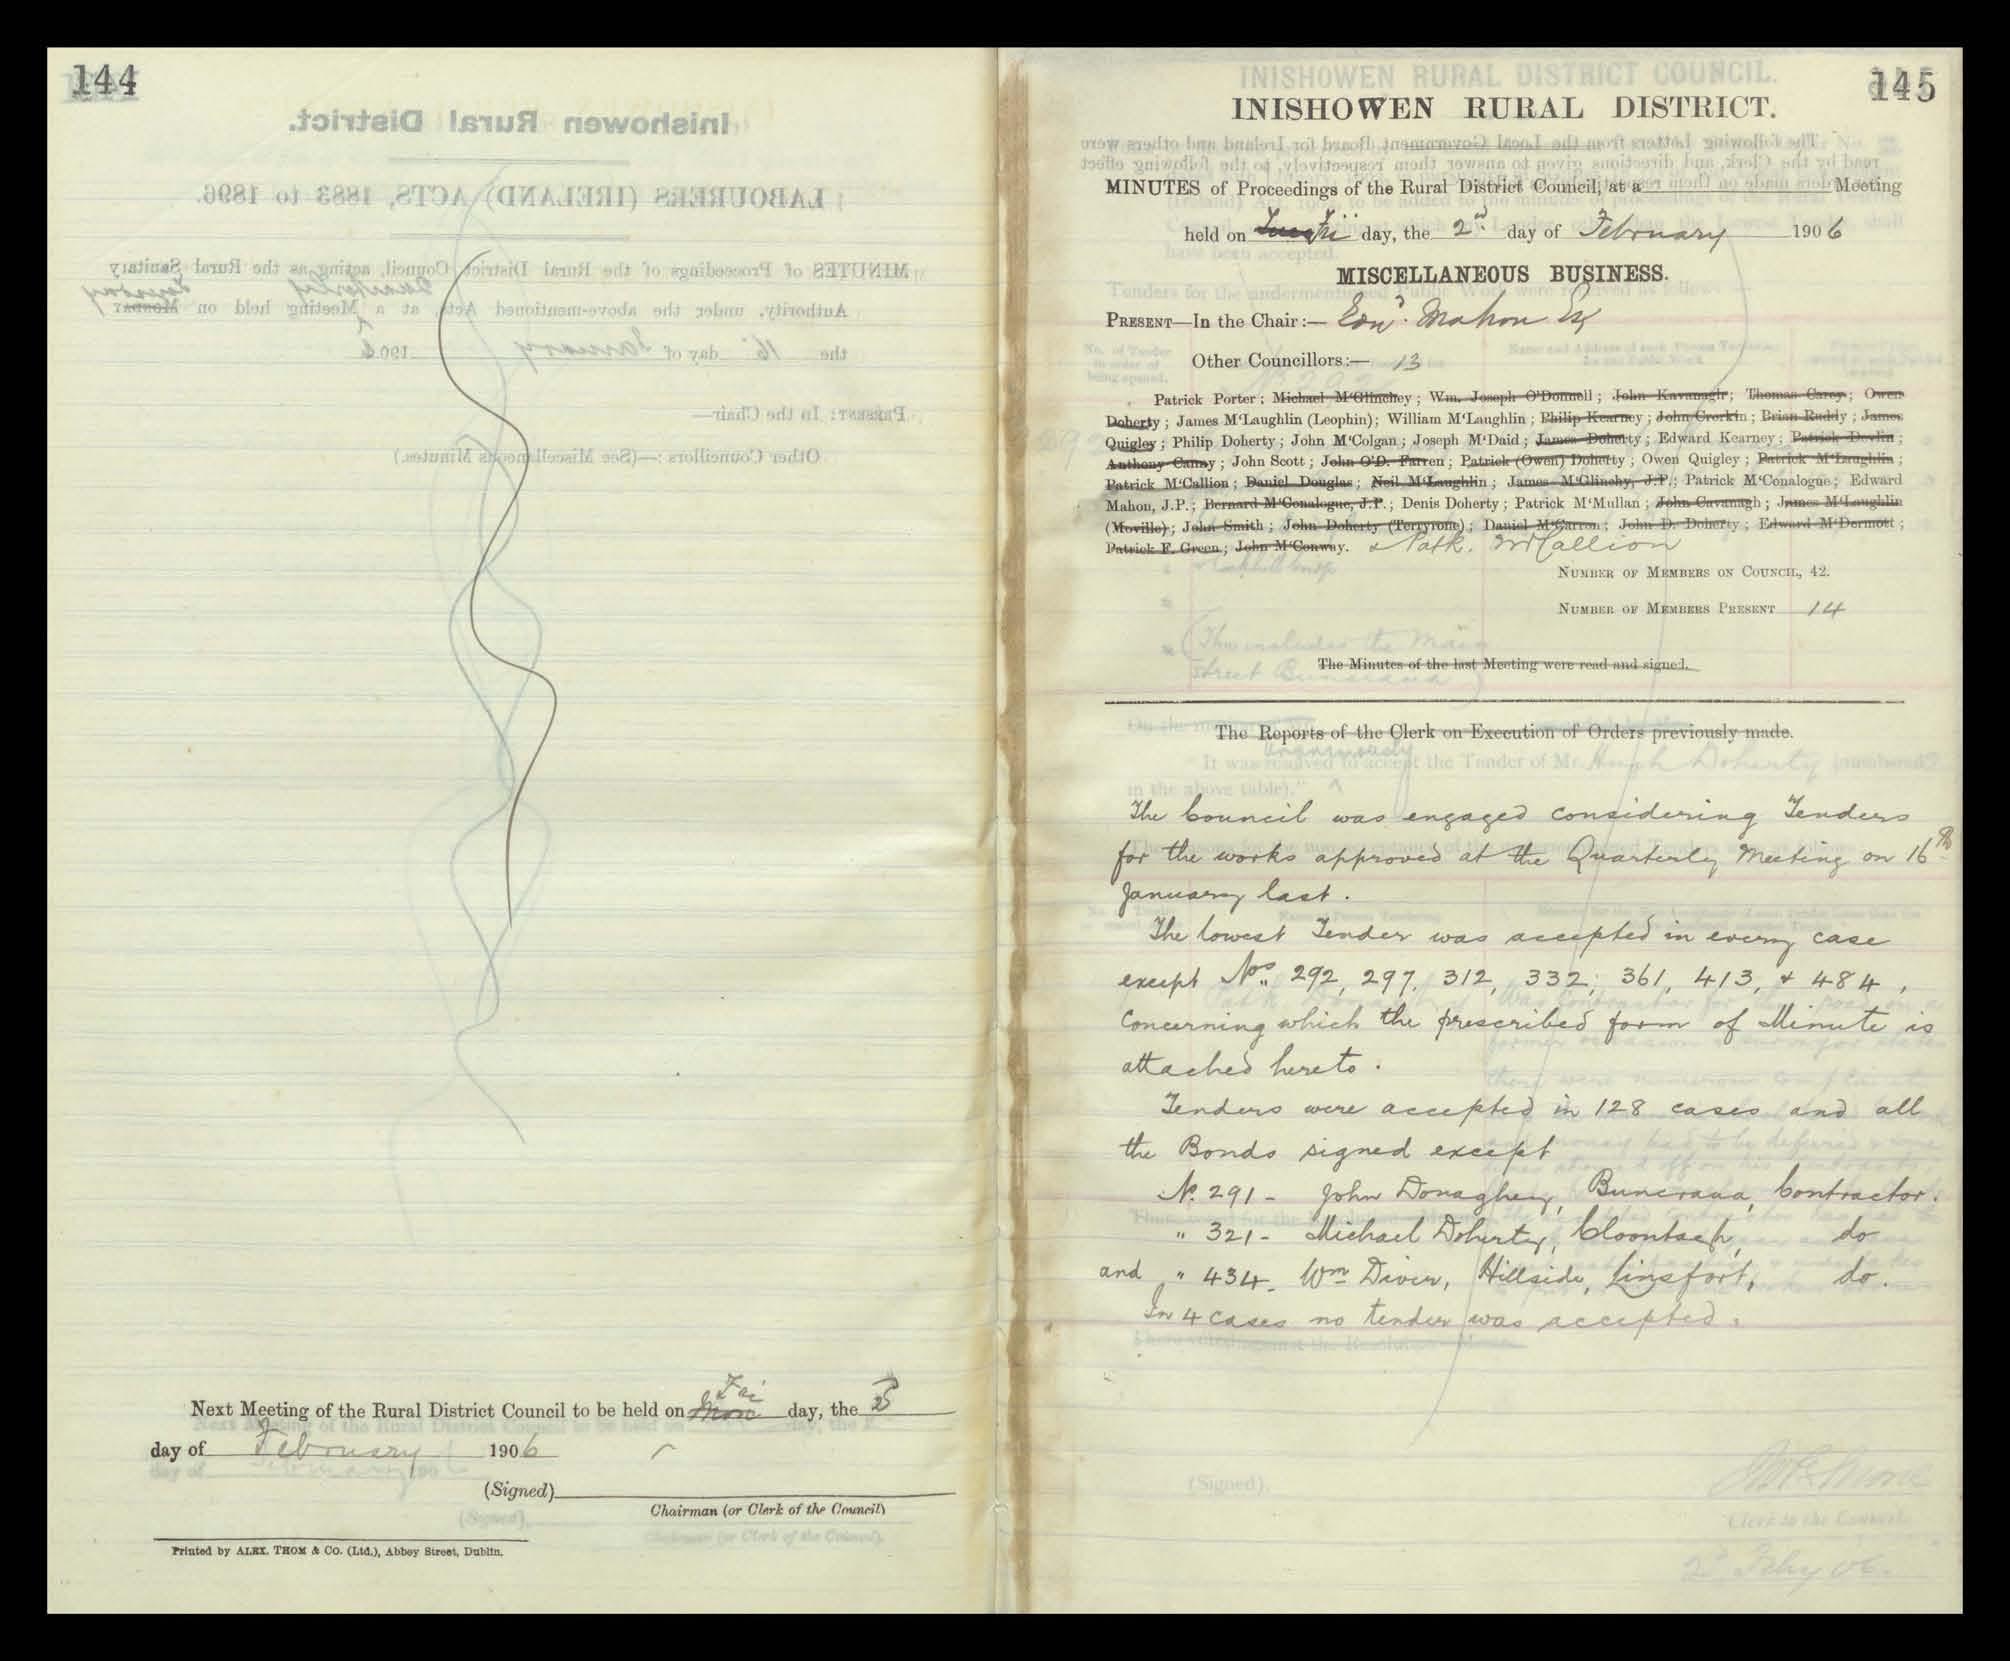 144
Next Meeting of the Rural District Council to be held on Mon Fri day, the 2
day of February 1906
(Signed)
Chairman (or Clerk of the Council)
Printed by ALEX. THOM & Co. (Ltd.), Abbey Street, Dublin.
145
INISHOWEN RURAL DISTRICT.
MINUTES of Proceedings of the Rural District Council, at a Meeting
held on Tues Fri day, the 2nd day of February 1906
MISCELLANEOUS BUSINESS.
PRESENT—In the Chair:— Edwd. Mahon Esq
Other Councillors:— 13
Patrick Porter; Michael M'Glinchey; Wm. Joseph O'Donnell; John Kavanagh; Thomas Carey; Owen
Doherty; James M'Laughlin (Leophin); William M'Laughlin; Philip Kearney; John Crerkin; Brian Ruddy; James
Quigley; Philip Doherty; John M'Colgan; Joseph M'Daid; James Doherty; Edward Kearney; Patrick Devlin;
Anthony Canny; John Scott; John O'D. Farren; Patrick (Owen) Doherty; Owen Quigley; Patrick M'Laughlin;
Patrick M'Callion; Daniel Douglas; Neil M'Laughlin; James M'Glinchy, J.P.; Patrick M'Conalogue; Edward
Mahon, J.P.; Bernard M'Conalogue, J.P.; Denis Doherty; Patrick M'Mullan; John Cavanagh; James M'Laughlin
(Moville); John Smith; John Doherty (Terryrone); Daniel M'Carron; John D. Doherty; Edward M'Dermott;
Patrick F. Green; John M'Conway. & Patk. McCallion
NUMBER OF MEMBERS ON COUNCIL, 42.
NUMBER OF MEMBERS PRESENT 14
The Minutes of the last Meeting were read and signed.
The Reports of the Clerk on Execution of Orders previously made.
The Council was engaged considering Tenders
for the works approved at the Quarterly Meeting on 16th
January last.
The lowest Tender was accepted in every case
except Nos. 292, 297, 312, 332, 361, 413, & 484,
Concerning which the prescribed form of Minute is
attached hereto.
Tenders were accepted in 128 cases and all
the Bonds signed except
No. 291 - John Donaghey, Buncrana, Contractor.
" 321 - Michael Doherty, Cloontagh, do
and " 434 - Wm Diver, Hillside, Linsfort, do.
In 4 cases no tender was accepted.